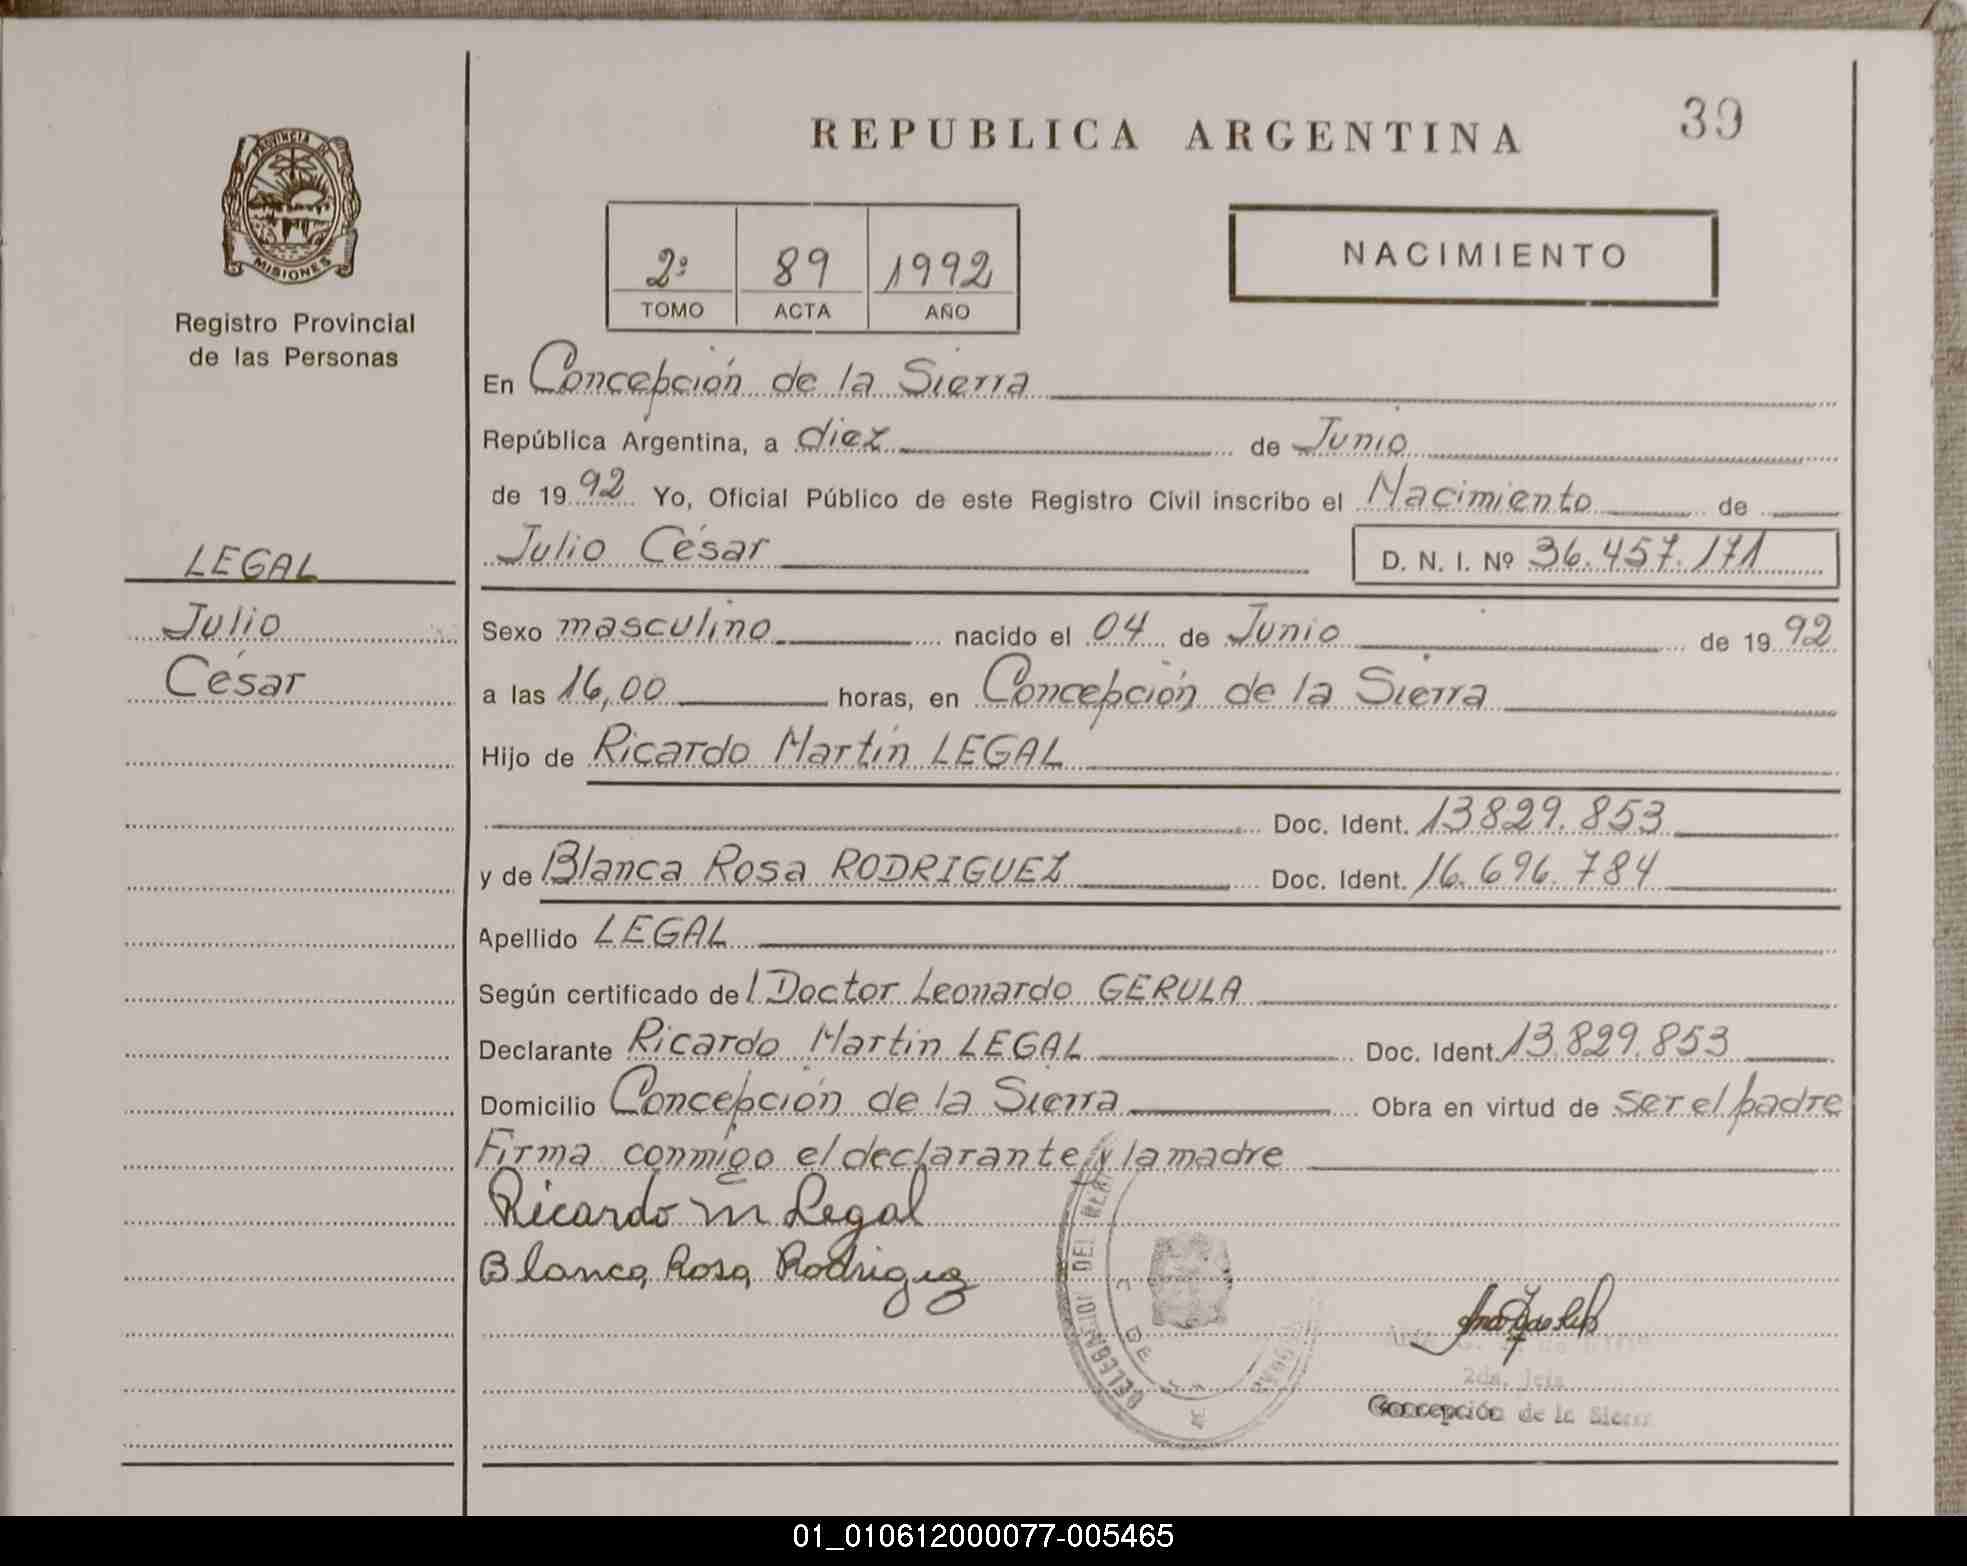 39
REPUBLICA ARGENTINA
PROVINCIA DE
MISIONES
Registro Provincial
de las Personas
2º 89 1992
TOMO ACTA AÑO
NACIMIENTO
En Concepción de la Sierra
República Argentina, a diez de Junio
de 1992 Yo, Oficial Público de este Registro Civil inscribo el Nacimiento de
Julio César D. N. I. Nº 36.457.171
LEGAL
Julio
César
Sexo masculino nacido el 04 de Junio de 1992
a las 16,00 horas, en Concepción de la Sierra
Hijo de Ricardo Martín LEGAL
Doc. Ident. 13829.853
y de Blanca Rosa RODRIGUEZ Doc. Ident. 16.696.784
Apellido LEGAL
Según certificado del Doctor Leonardo GERULA
Declarante Ricardo Martin LEGAL Doc. Ident. 13.829.853
Domicilio Concepción de la Sierra Obra en virtud de ser el padre
Firma conmigo el declarante y la madre
Ricardo M Legal
Blanca Rosa Rodriguez
DELEGACION DEL
2da. Jefa
Concepción de la Sierra
01_010612000077-005465